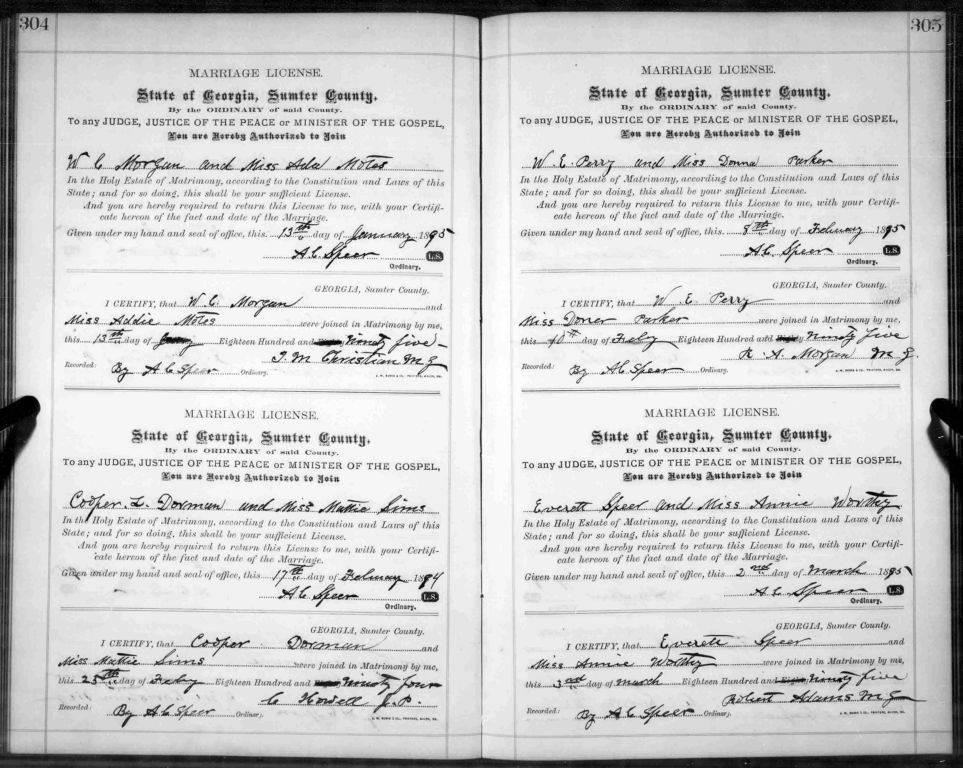 304
MARRIAGE LICENSE.
State of Georgia, Sumter County.
By the ORDINARY of said County.
To any JUDGE, JUSTICE OF THE PEACE or MINISTER OF THE GOSPEL,
You are Hereby Authorized to Join
W C Morgan and Miss Ada Motes
In the Holy Estate of Matrimony, according to the Constitution and Laws of this
State; and for so doing, this shall be your sufficient License.
And you are hereby required to return this License to me, with your Certifi-
cate hereon of the fact and date of the Marriage.
Given under my hand and seal of office, this 13th day of January 1895
A.C. Speer L.S.
Ordinary.
GEORGIA, Sumter County.
I CERTIFY, that W. C. Morgan and
Miss Addie Motes were joined in Matrimony by me,
this 13th day of Jany Eighteen Hundred and Ninety five
T. M. Christian M G
Recorded: By A C Speer Ordinary.
MARRIAGE LICENSE.
State of Georgia, Sumter County.
By the ORDINARY of said County.
To any JUDGE, JUSTICE OF THE PEACE or MINISTER OF THE GOSPEL,
You are Hereby Authorized to Join
Cooper L. Dorman and Miss Mattie Sims
In the Holy Estate of Matrimony, according to the Constitution and Laws of this
State; and for so doing, this shall be your sufficient License.
And you are hereby required to return this License to me, with your Certifi-
cate hereon of the fact and date of the Marriage.
Given under my hand and seal of office, this 17th day of February 1894
A C Speer L.S.
Ordinary.
GEORGIA, Sumter County.
I CERTIFY, that Cooper Dorman and
Miss Mattie Sims were joined in Matrimony by me,
this 25th day of Feby Eighteen Hundred and Ninety four
C Howell J. P.
Recorded: By A C Speer Ordinary.
305
MARRIAGE LICENSE.
State of Georgia, Sumter County.
By the ORDINARY of said County.
To any JUDGE, JUSTICE OF THE PEACE or MINISTER OF THE GOSPEL,
You are Hereby Authorized to Join
W. E. Perry and Miss Donna Parker
In the Holy Estate of Matrimony, according to the Constitution and Laws of this
State; and for so doing, this shall be your sufficient License.
And you are hereby required to return this License to me, with your Certifi-
cate hereon of the fact and date of the Marriage.
Given under my hand and seal of office, this 8th day of February 1895
A.C. Speer L.S.
Ordinary.
GEORGIA, Sumter County.
I CERTIFY, that W E Perry and
Miss Doner Parker were joined in Matrimony by me,
this 10th day of Feby Eighteen Hundred and Ninety five
R. A. Morgan M G.
Recorded: By A C Speer Ordinary.
MARRIAGE LICENSE.
State of Georgia, Sumter County.
By the ORDINARY of said County.
To any JUDGE, JUSTICE OF THE PEACE or MINISTER OF THE GOSPEL,
You are Hereby Authorized to Join
Everett Speer and Miss Annie Worthy
In the Holy Estate of Matrimony, according to the Constitution and Laws of this
State; and for so doing, this shall be your sufficient License.
And you are hereby required to return this License to me, with your Certifi-
cate hereon of the fact and date of the Marriage.
Given under my hand and seal of office, this 2nd day of March 1895
A C Speer L.S.
Ordinary.
GEORGIA, Sumter County.
I CERTIFY, that Everett Speer and
Miss Annie Worthy were joined in Matrimony by me,
this 3rd day of March Eighteen Hundred and Ninety five
Robert Adams M G
Recorded: By A C Speer Ordinary.